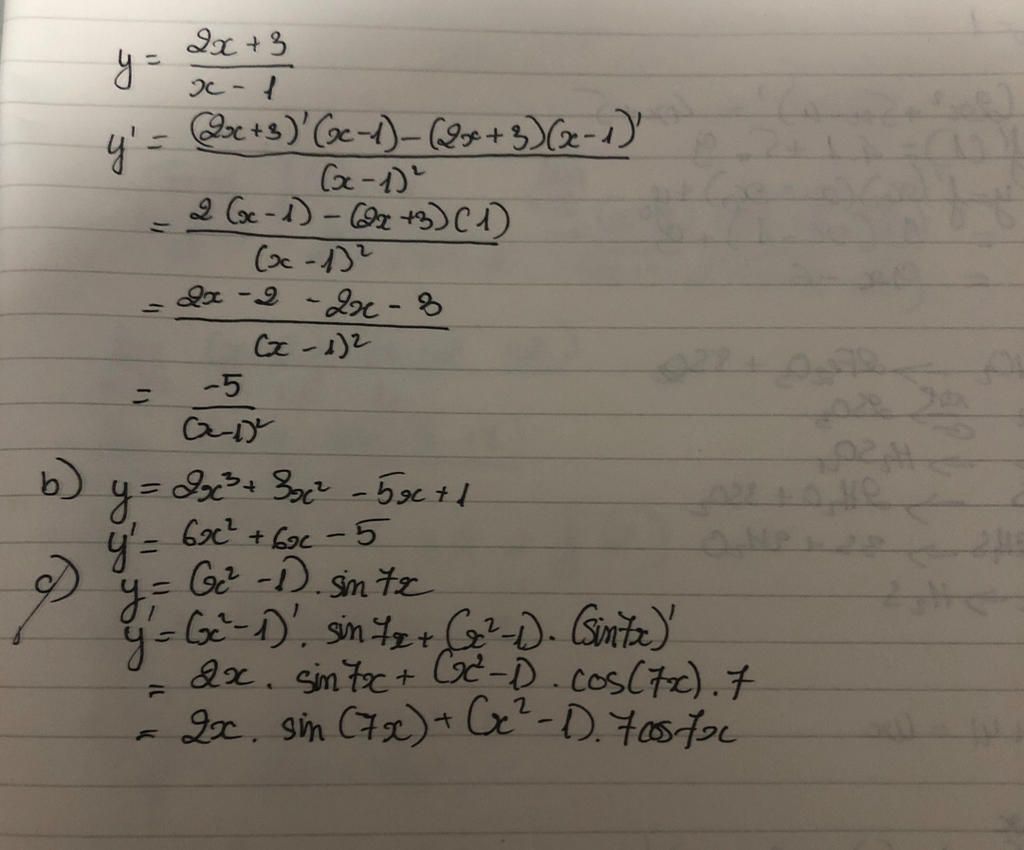 y = (2x + 3)/(x - 1)
y' = ((2x+3)'(x-1) - (2x+3)(x-1)')/(x-1)²
= (2(x-1) - (2x+3)(1))/(x-1)²
= (2x - 2 - 2x - 3)/(x-1)²
= -5/(x-1)²
b) y = 2x³ + 3x² - 5x + 1
y' = 6x² + 6x - 5
c) y = (x² - 1) . sin 7x
y' = (x² - 1)' . sin 7x + (x² - 1) . (sin 7x)'
= 2x . sin 7x + (x² - 1) . cos(7x) . 7
= 2x . sin (7x) + (x² - 1) . 7cos 7x